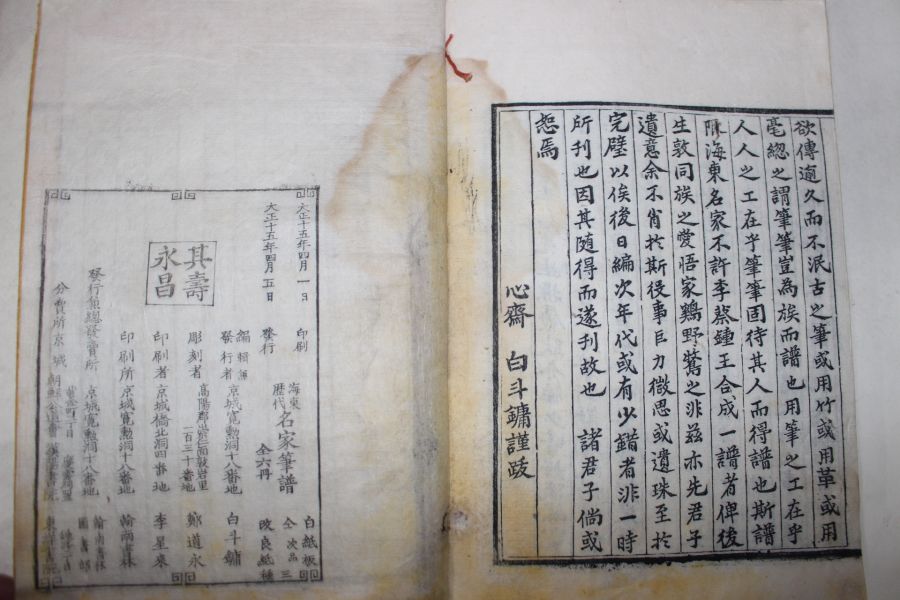 欲傳遒久而不泯古之筆或用竹或用革或用
毫總之謂筆筆豈為族而譜也用筆之工在乎
人人之工在乎筆筆固待其人而得譜也斯譜
陳海東名家不許李蔡鍾王合成一譜者俾後
生敦同族之愛悟家鷄野鶩之非玆亦先君子
遺意余不肖於斯役事巨力微思或遺珠至於
完璧以俟後日編次年代或有少錯者非一時
所刊也因其隨得而遂刊故也 諸君子倘或
恕焉
心齋 白斗鏞謹跋
大正十五年四月一日 印刷
大正十五年四月五日 發行
海東歷代名家筆譜 全六冊
白紙板
改良紙種
其壽永昌
編輯兼發行者 京城寬勳洞十八番地 白斗鏞
彫刻者 高陽郡崇仁面敦岩里一百三十番地 鄭道永
印刷者 京城橋北洞四番地 李星來
印刷所 京城寬勳洞十八番地 翰南書林
發行兼總發賣所 京城寬勳洞十八番地 翰南書林
圖書部
分賣所 京城